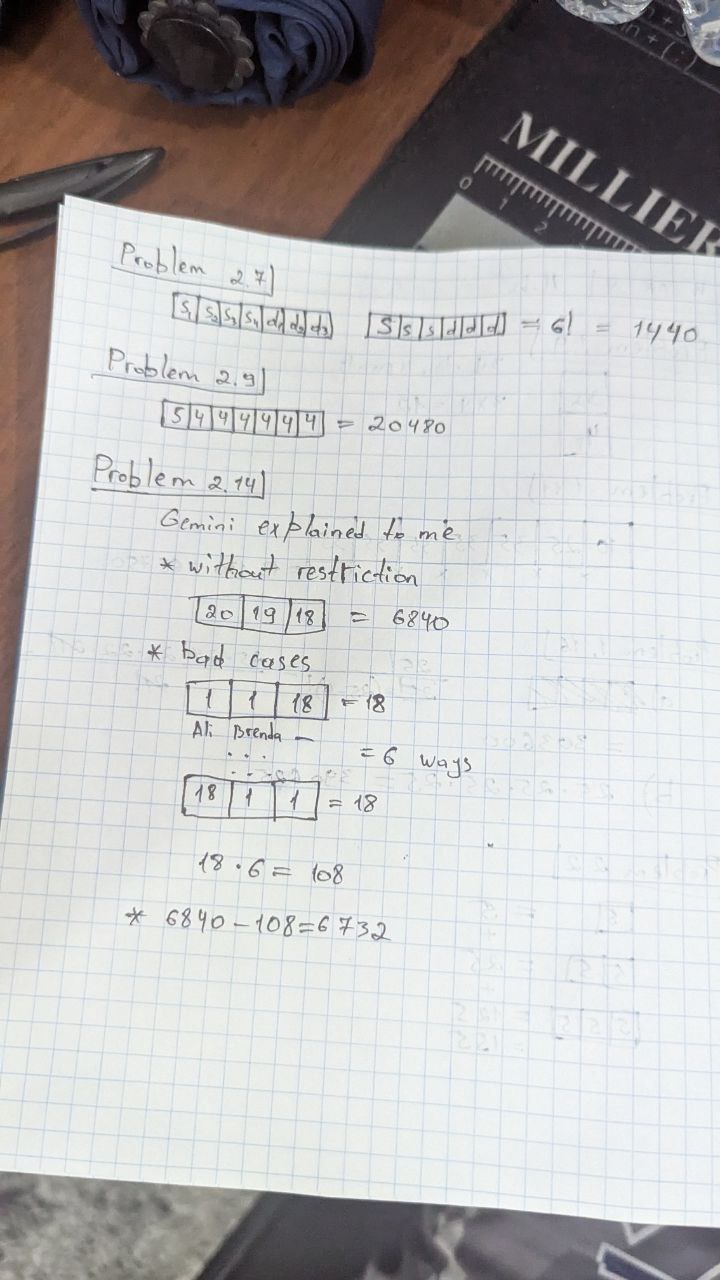 MILLIE
0 1 2
Problem 2.7
S1 S2 S3 S4 d1 d2 d3 S S S d d d = 6! = 1440
Problem 2.9
5 4 4 4 4 4 4 = 20480
Problem 2.14
Gemini explained to me
* without restriction
20 19 18 = 6840
* bad cases
1 1 18 = 18
Ali Brenda —
... = 6 ways
18 1 1 = 18
18 · 6 = 108
* 6840 - 108 = 6732